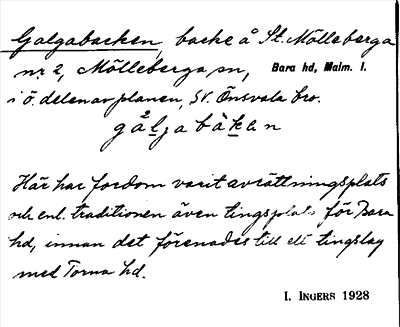 Galgabacken, backe å St. Mölleberga
nr 2, Mölleberga sn, Bara hd, Malm. l.
i ö. delen av planen, SV. Önsvala bro.
gålja bàkan
Här har fordom varit avrättningsplats
och enl. traditionen även tingsplats för Bara
hd, innan det förenades till ett tingslag
med Torna hd.
I. INGERS 1928